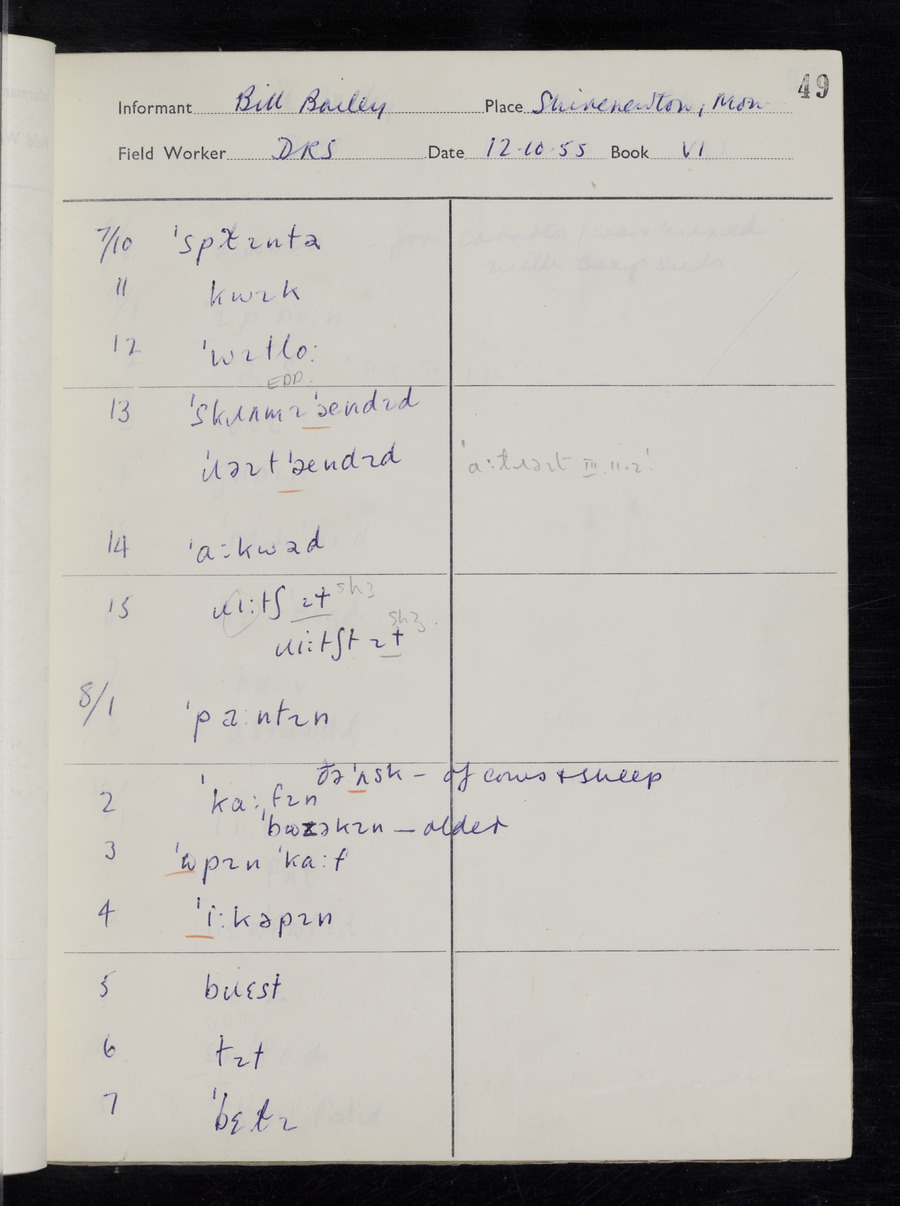 49
Informant Bill Bailey Place Shirenewton, Mon
Field Worker DRS Date 12·10·55 Book VI
7/10 ˈspɫɪntə
11 kwɪk
12 ˈwɪtloː
EDD.
13 ˈskɹʌmɪˈændɪd
ˈɹəɪtˈændɪd ˈaːtɹəɪt III.11.2!
14 ˈaːkwəd
15 ɹiːtʃ ɪt sh3
ɹiːtʃt ɪt sh3.
8/1 ˈpəːntɪn
2 ˈkaːfɪn ðə ˈʌsk – of cows + sheep
ˈbɷzəkɪn – older
3 ˈɷpɪn ˈkaːf
4 ˈiːkəpɪn
5 bɹɛst
6 tɪt
7 ˈbɛɫɪ